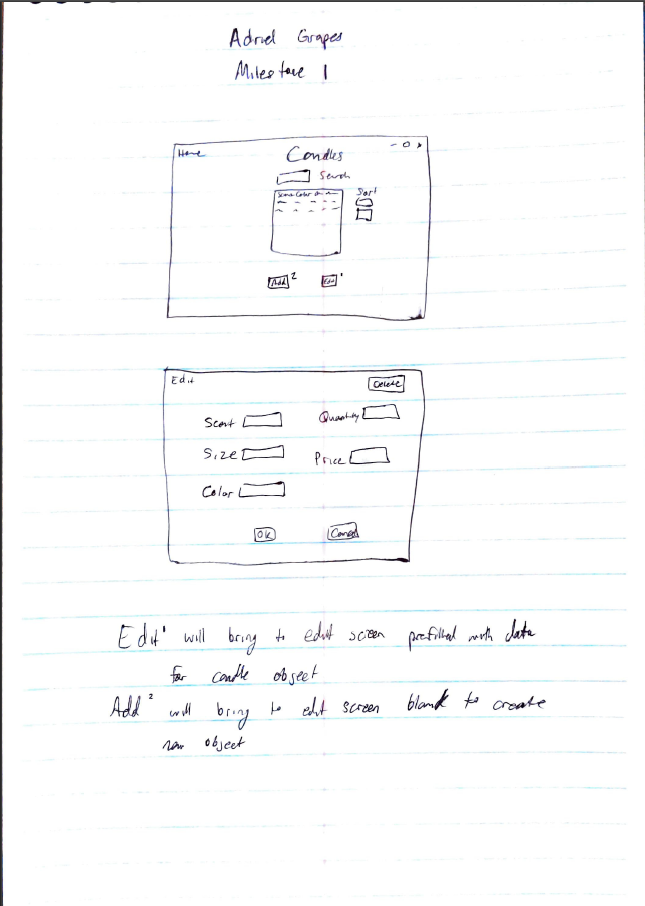 Adriel Grapes
Milestone 1
Home
Candles
Search
Scent Color
Sort
Add 2
Edit 1
Edit
Delete
Scent
Quantity
Size
Price
Color
OK
Cancel
Edit 1 will bring to edit screen prefilled with data
for candle object
Add 2 will bring to edit screen blank to create
new object